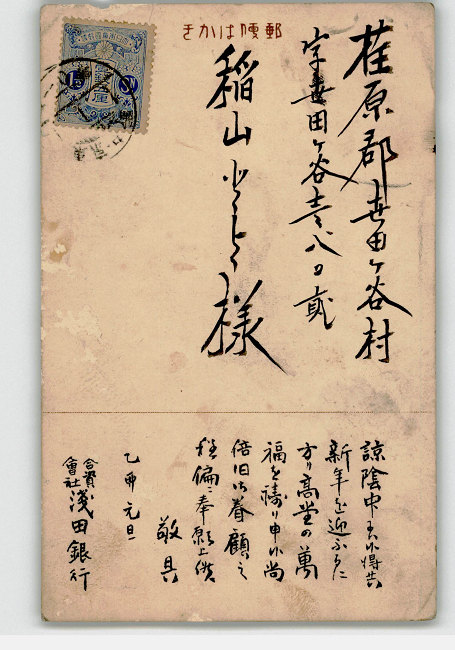 郵便はかき
荏原郡世田ヶ谷村
字世田ヶ谷壱八〇貳
稲山
様
諒陰中
新年を迎ふるに
方り高堂の萬
福を祷り申候尚
倍旧御眷顧之
程偏ニ奉願上候
敬具
乙卯元旦
合資會社淺田銀行